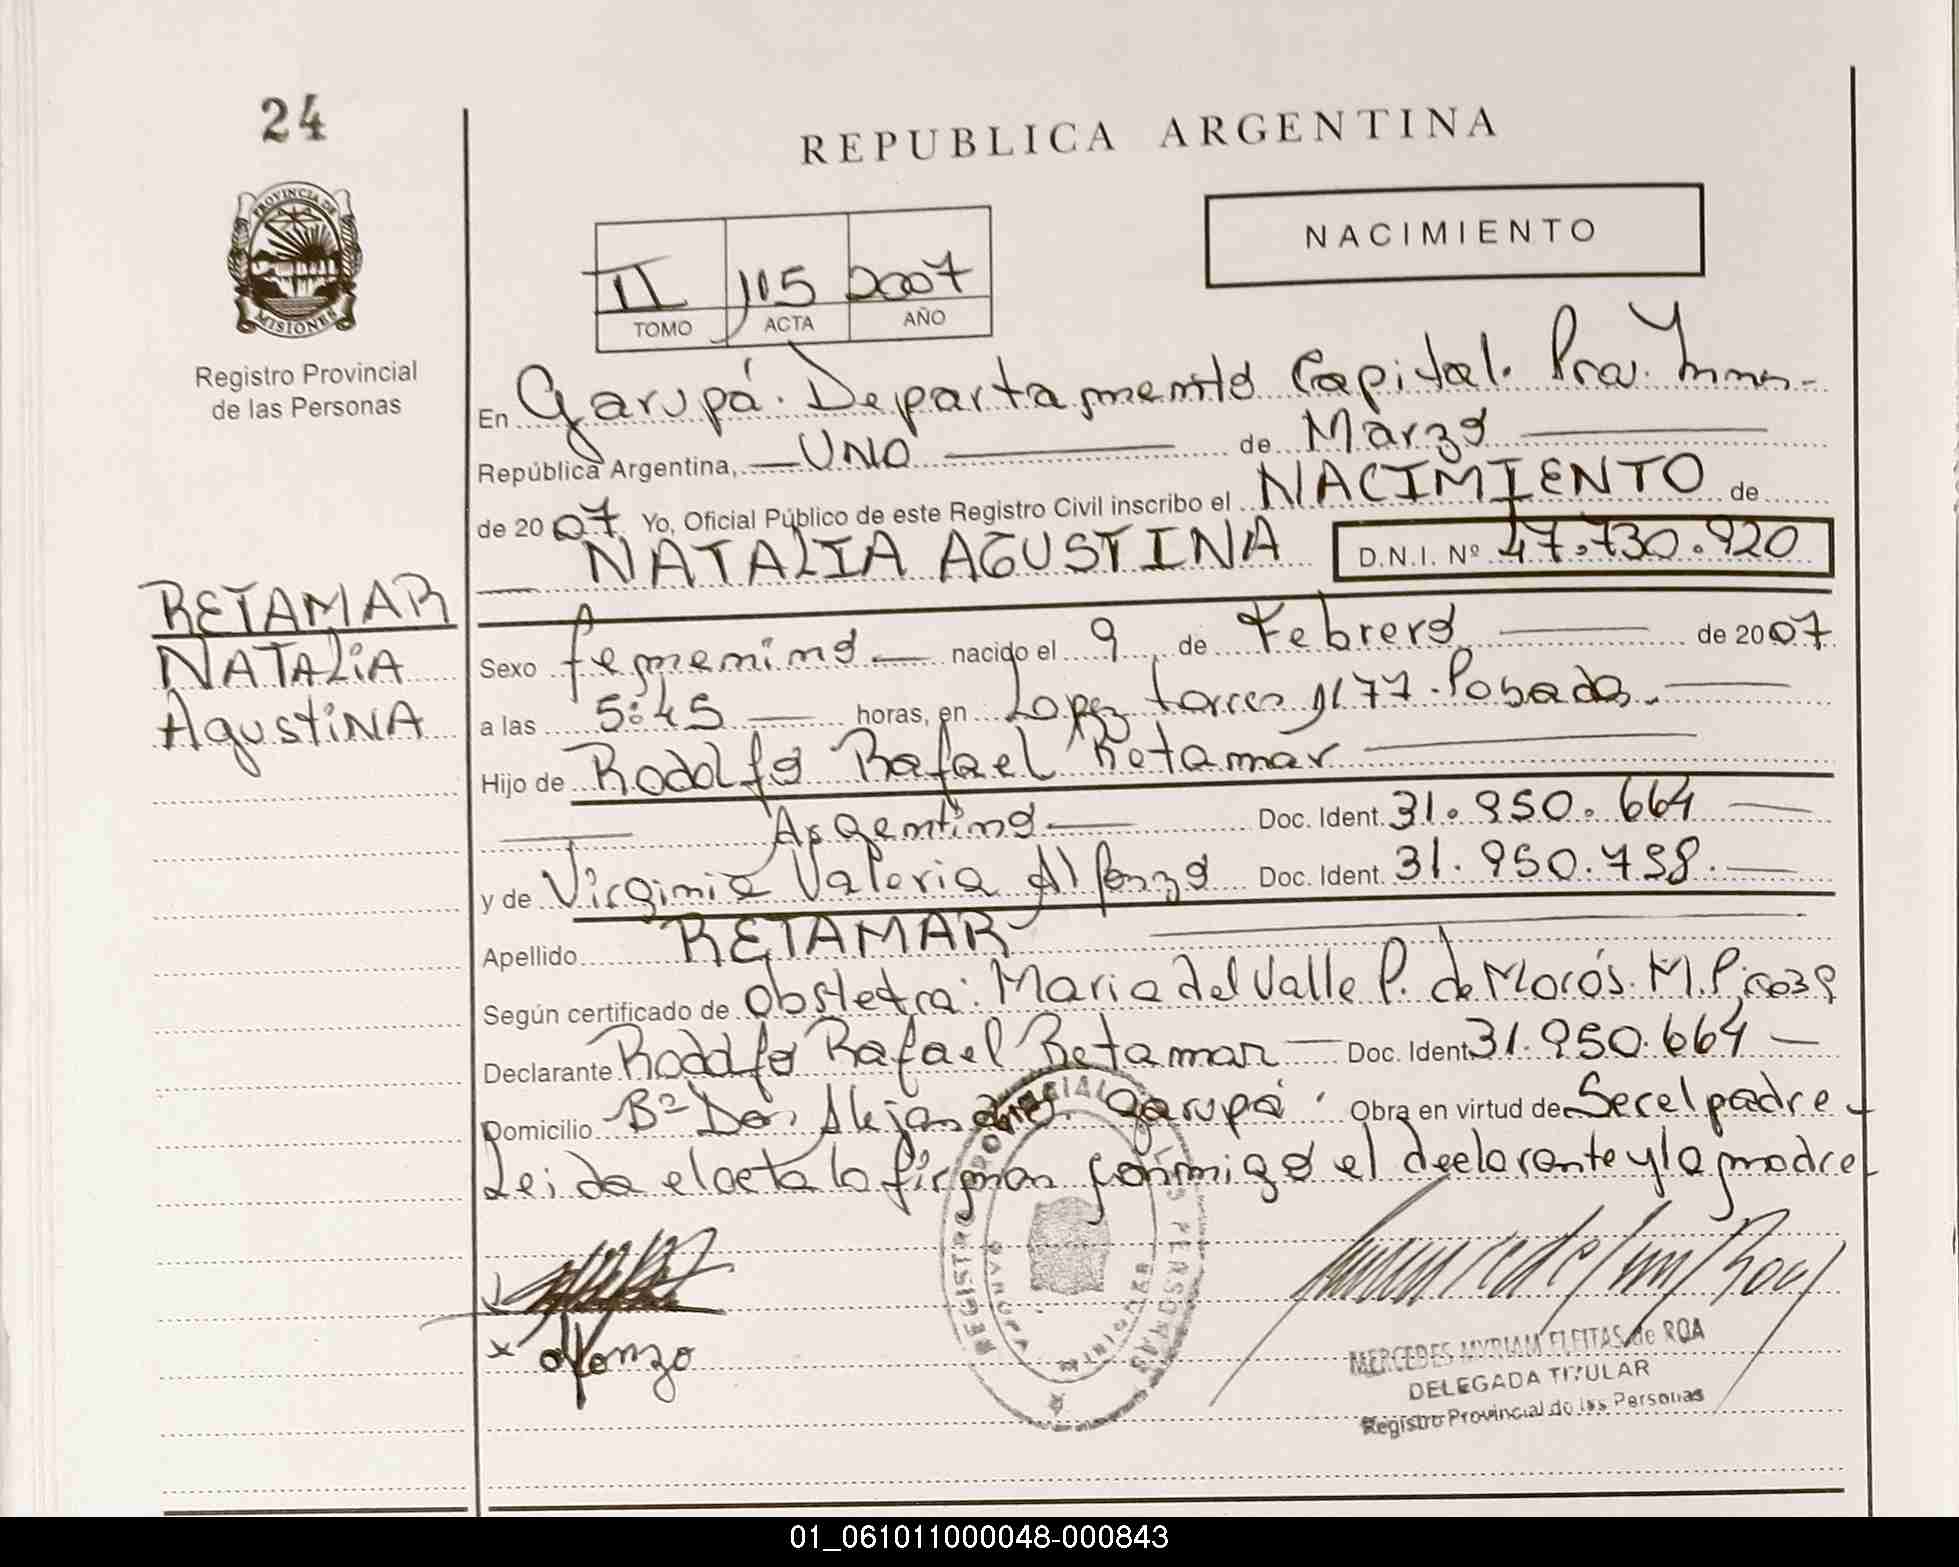 24
REPUBLICA ARGENTINA
PROVINCIA DE
MISIONES
Registro Provincial
de las Personas
NACIMIENTO
II 115 2007
TOMO ACTA AÑO
En Garupá. Departamento Capital. Pra. Mnes.-
República Argentina, UNO de Marzo
de 2007 Yo, Oficial Público de este Registro Civil inscribo el NACIMIENTO de
NATALIA AGUSTINA D.N.I. Nº 47.730.920
RETAMAR
NATALIA
AgustiNA
Sexo femenino nacido el 9 de Febrero de 2007
a las 5:45 horas, en Lopez torres 1177. Posadas.
Hijo de Rodolfo Rafael Retamar
Argentino Doc. Ident. 31.950.664
y de Virginia Valeria Alfonzo Doc. Ident. 31.950.758.
Apellido RETAMAR
Según certificado de obstetra: Maria del Valle P. de Morós. M.P.
Declarante Rodolfo Rafael Retamar Doc. Ident 31.950.664
Domicilio Bº Don Alejandro. Garupá. Obra en virtud de Ser el padre
Leida el acta la firman conmigo el declarante y la madre
x alfonzo
REGISTRO PROVINCIAL DE LAS PERSONAS
GARUPA MISIONES
MERCEDES MYRIAM FLEITAS de ROA
DELEGADA TITULAR
Registro Provincial de las Personas
01_061011000048-000843